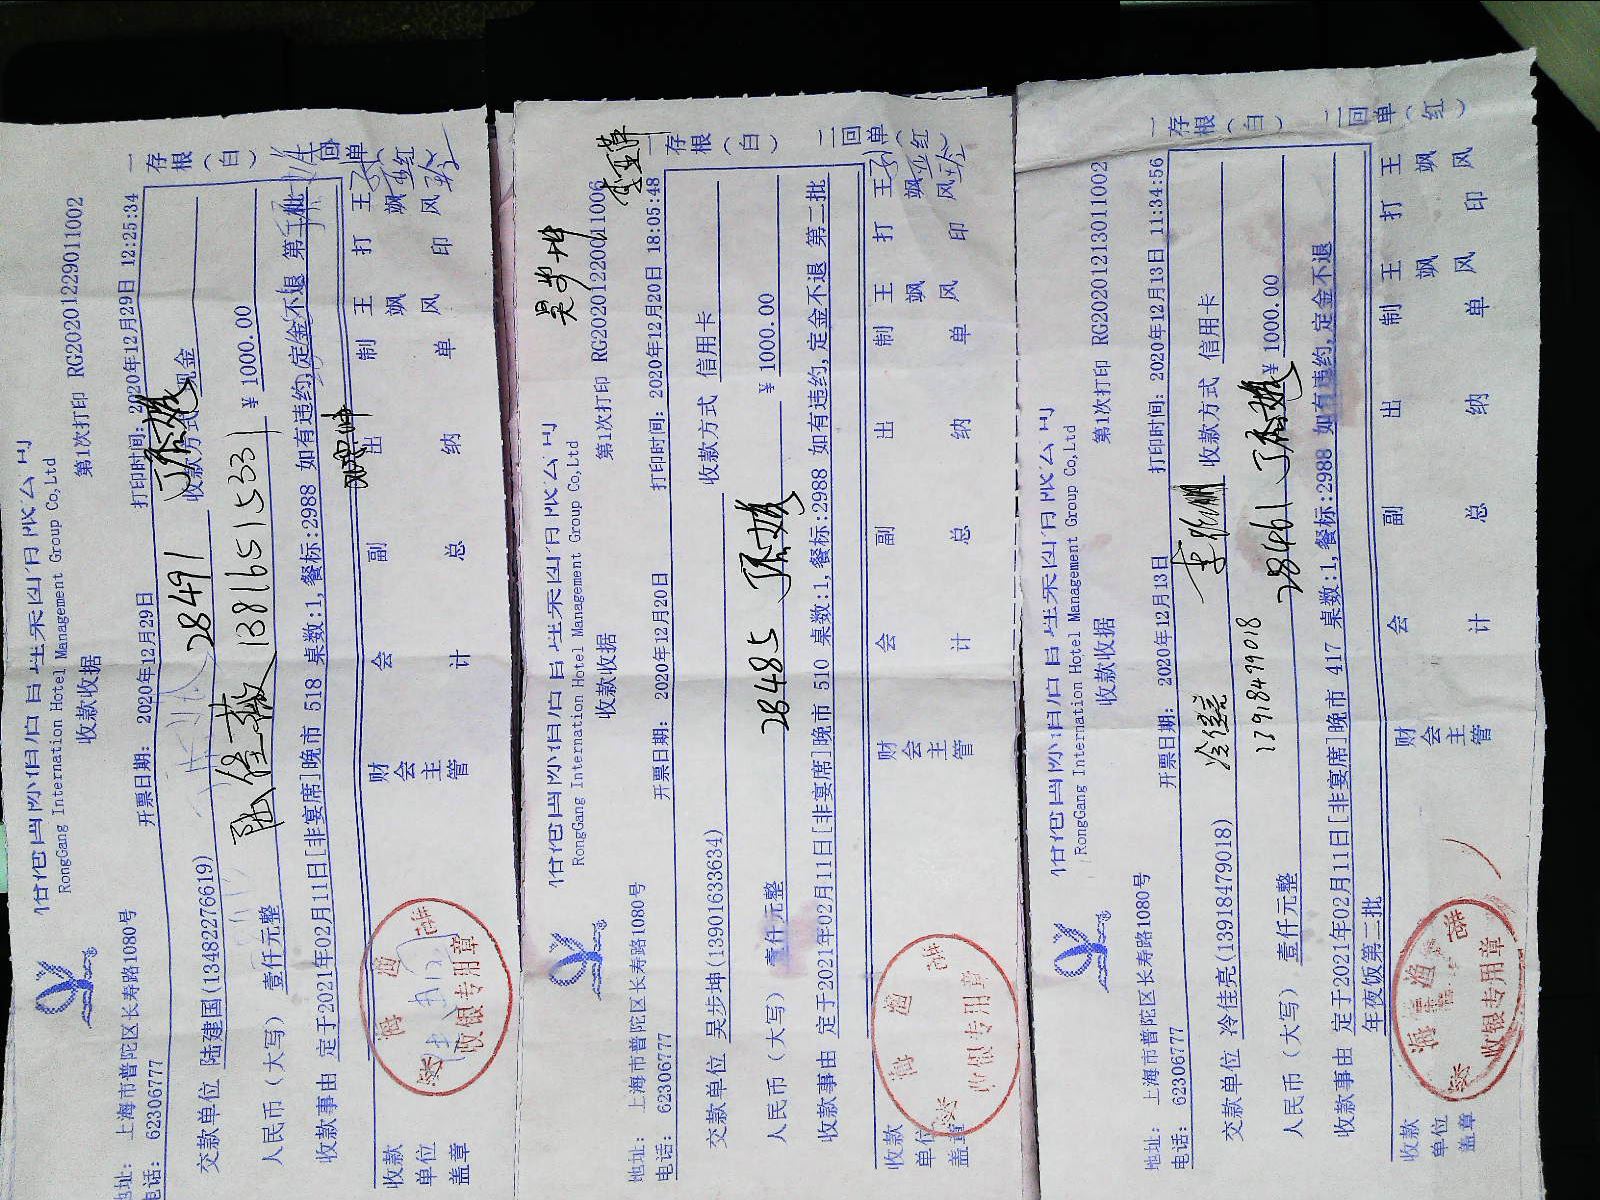 RongGang International Hotel Management Group Co,Ltd
收款收据
第1次打印 RG20201229011002
地址: 上海市普陀区长寿路1080号
电话: 62306777
开票日期: 2020年12月29日
打印时间: 2020年12月29日 12:25:34
交款单位 陆建国(13482276619)
28491
收款方式 现金
陆佳薇 13816515331
人民币(大写) 壹仟元整
¥ 1000.00
收款事由 定于2021年02月11日[非宴席]晚市 518 桌数:1,餐标:2988 如有违约,定金不退 第二批
收款单位盖章
财会主管
会计
副总
出纳
制单 王飒风
打印 王飒风
一存根(白) 二回单(红)
收银专用章
RongGang International Hotel Management Group Co,Ltd
收款收据
第1次打印 RG20201220011006
吴步坤
地址: 上海市普陀区长寿路1080号
电话: 62306777
开票日期: 2020年12月20日
打印时间: 2020年12月20日 18:05:48
交款单位 吴步坤(13901633634)
收款方式 信用卡
人民币(大写) 壹仟元整
28485
¥ 1000.00
收款事由 定于2021年02月11日[非宴席]晚市 510 桌数:1,餐标:2988 如有违约,定金不退 第二批
收款单位盖章
财会主管
会计
副总
出纳
制单 王飒风
打印 王飒风
一存根(白) 二回单(红)
收银专用章
RongGang International Hotel Management Group Co,Ltd
收款收据
第1次打印 RG20201213011002
地址: 上海市普陀区长寿路1080号
电话: 62306777
开票日期: 2020年12月13日
打印时间: 2020年12月13日 11:34:56
交款单位 冷佳亮(13918479018)
冷佳亮
收款方式 信用卡
13918479018
28461
人民币(大写) 壹仟元整
¥ 1000.00
收款事由 定于2021年02月11日[非宴席]晚市 417 桌数:1,餐标:2988 如有违约,定金不退
年夜饭第二批
收款单位盖章
财会主管
会计
副总
出纳
制单 王飒风
打印 王飒风
一存根(白) 二回单(红)
收银专用章